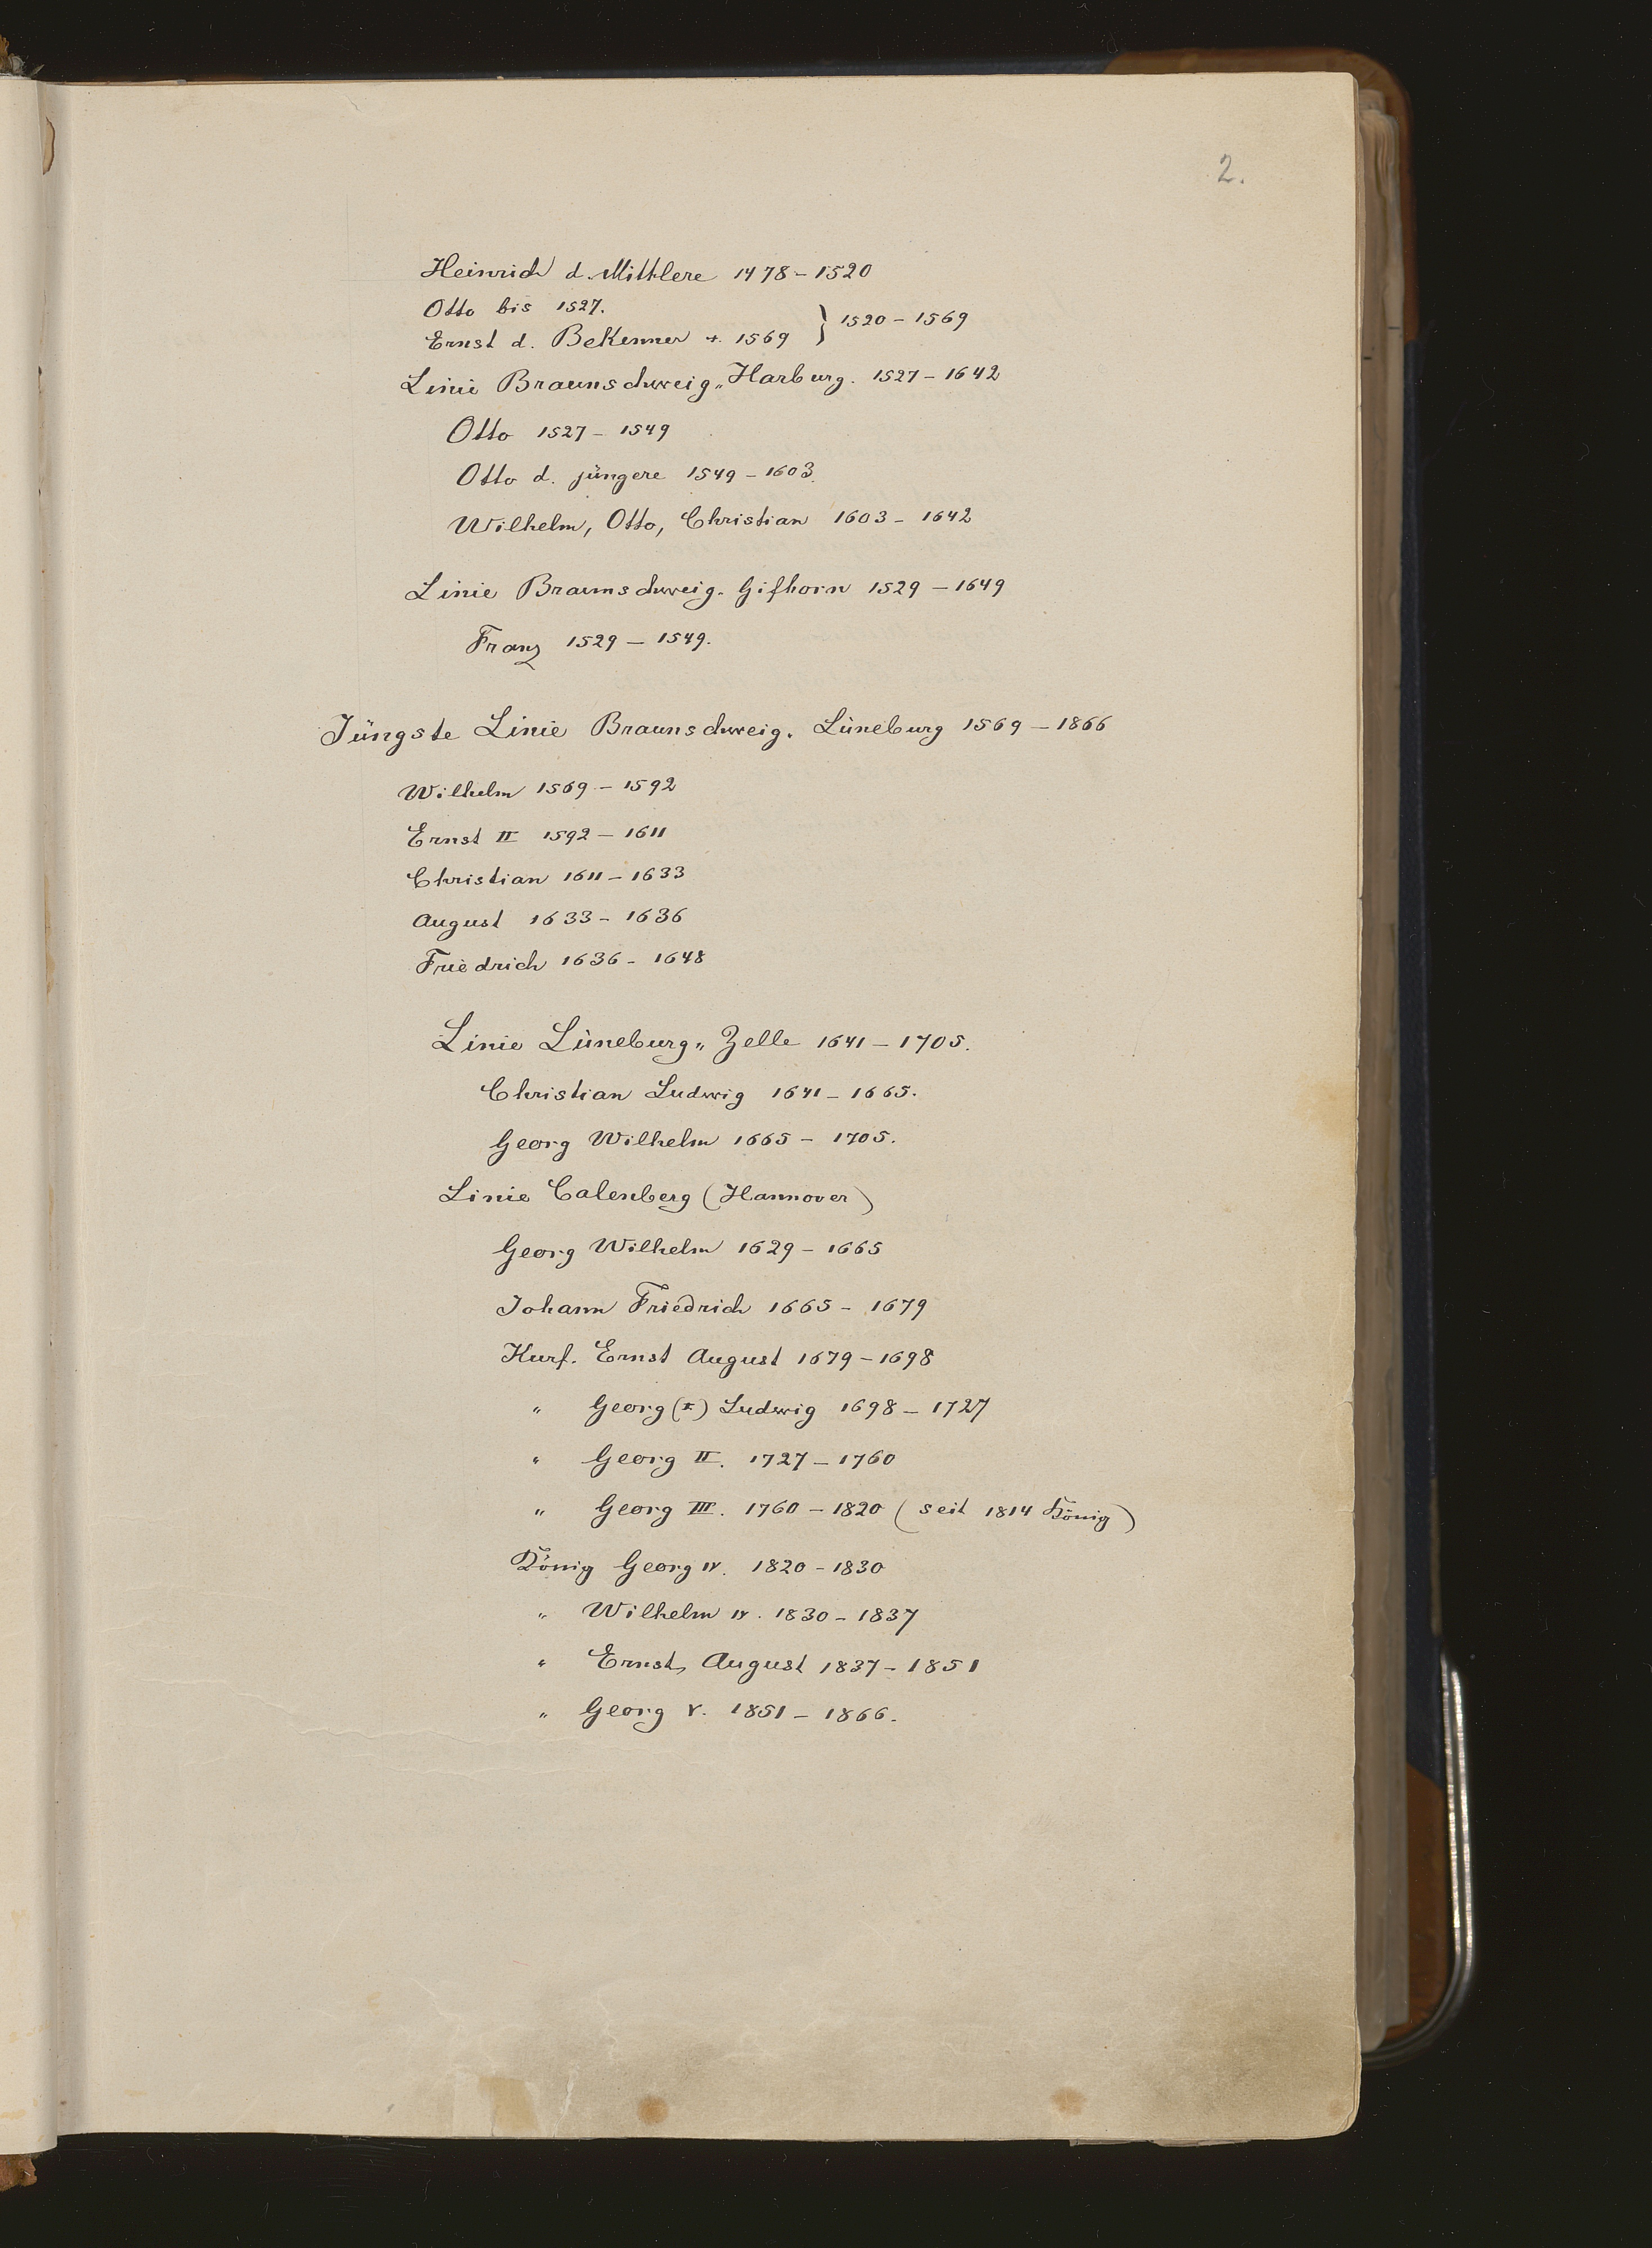 2.
Heinrich d. Mittlere 1478 - 1520
Otto bis 1527.
Ernst d. Bekenner +. 1569 } 1520 - 1569
Linie Braunschweig„ Harburg. 1527 - 1642
Otto 1527 - 1549
Otto d. jüngere 1549 - 1603.
Wilhelm, Otto, Christian 1603 - 1642
Linie Braunschweig. Gifhorn 1529 - 1649
Franz 1529 - 1549.
Jüngste Linie Braunschweig. Lüneburg 1569 - 1866
Wilhelm 1569 - 1592
Ernst II 1592 - 1611
Christian 1611 - 1633
August 1633 - 1636
Friedrich 1636 - 1648
Linie Lüneburg„ Zelle 1641 - 1705.
Christian Ludwig 1641 - 1665.
Georg Wilhelm 1665 - 1705.
Linie Calenberg (Hannover)
Georg Wilhelm 1629 - 1665
Johann Friedrich 1665 - 1679
Kurf. Ernst August 1679 - 1698
„ Georg (I) Ludwig 1698 - 1727
„ Georg II. 1727 - 1760
„ Georg III. 1760 - 1820 (seit 1814 König)
König Georg IV. 1820 - 1830
„ Wilhelm IV. 1830 - 1837
„ Ernst August 1837 - 1851
„ Georg V. 1851 - 1866.